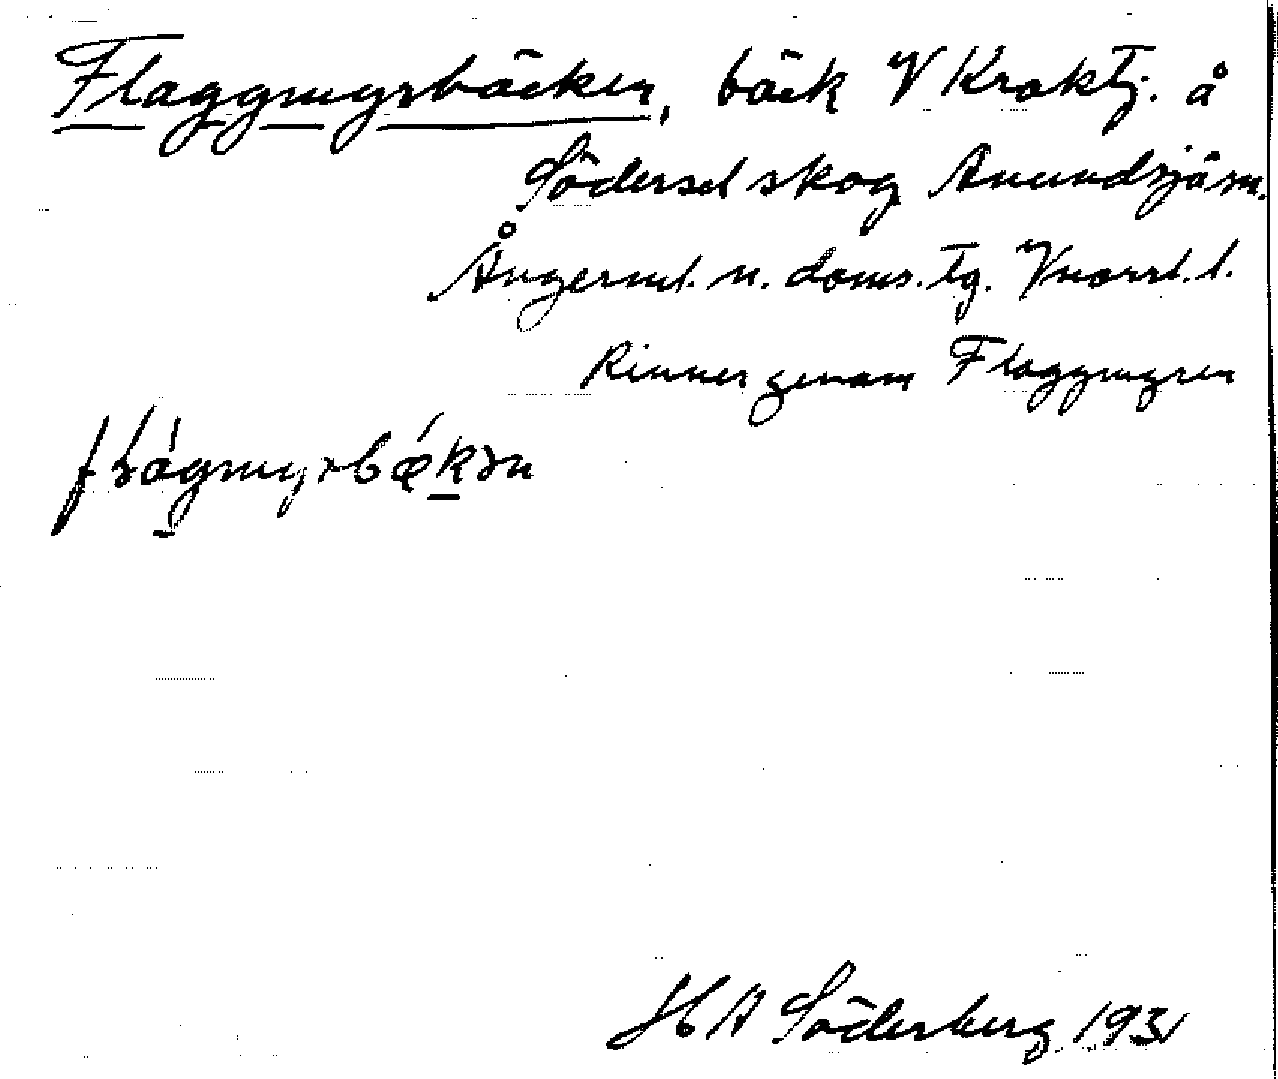 Flaggmyrbäcken, bäck V Kraktj. å
Södersel skog Anundsjö sn.
Ångerml. n. doms. tg. Vnorrl. l.
Rinner genom Flaggmyren
H A Söderberg 1931